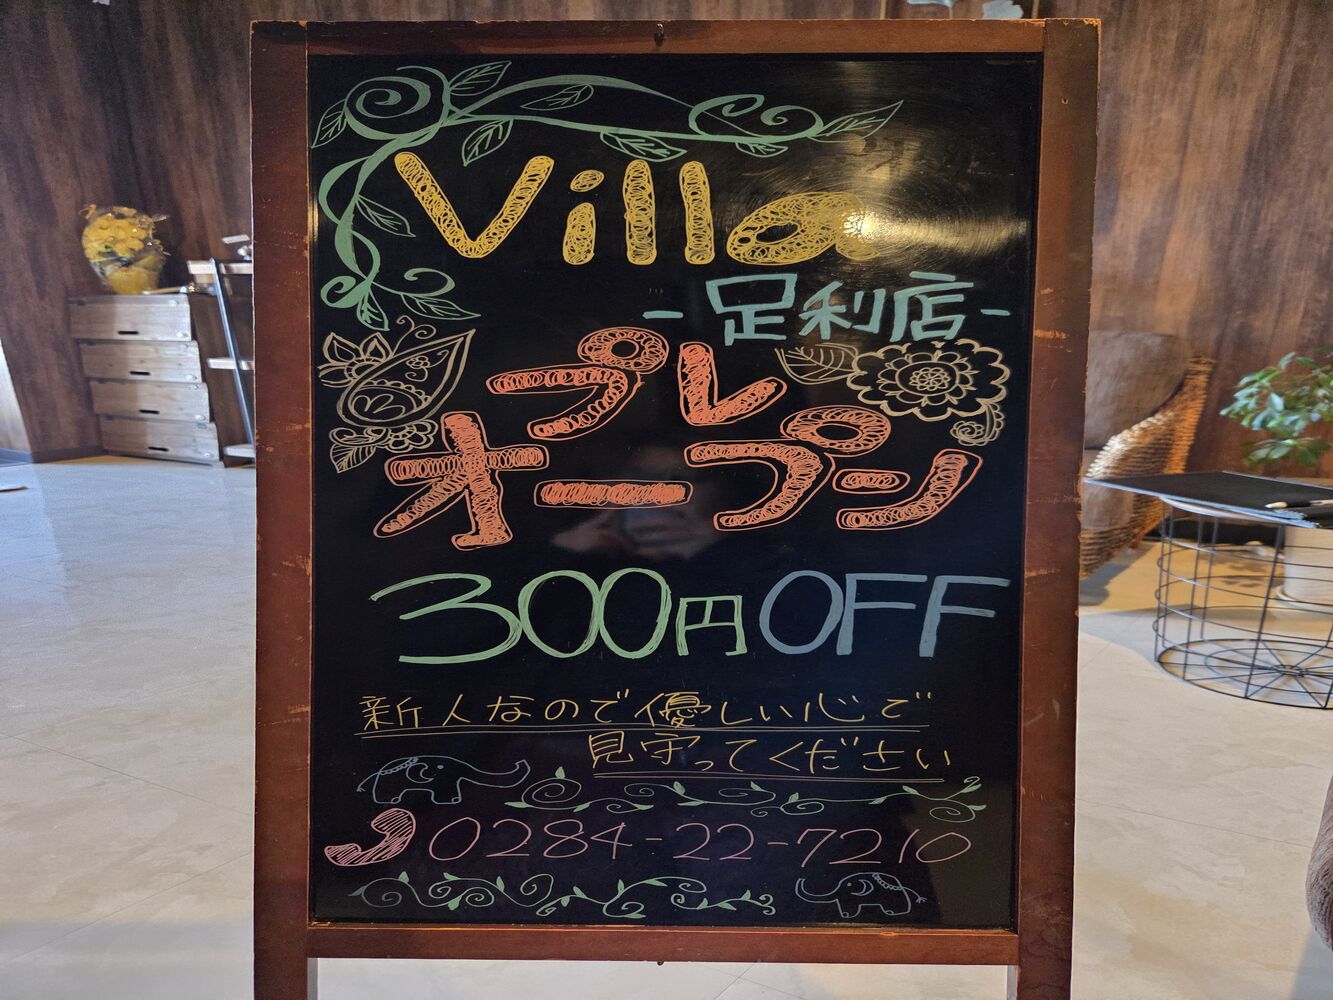 Villa
-足利店-
プレ
オープン
300円OFF
新人なので優しい心で
見守ってください
0284-22-7210